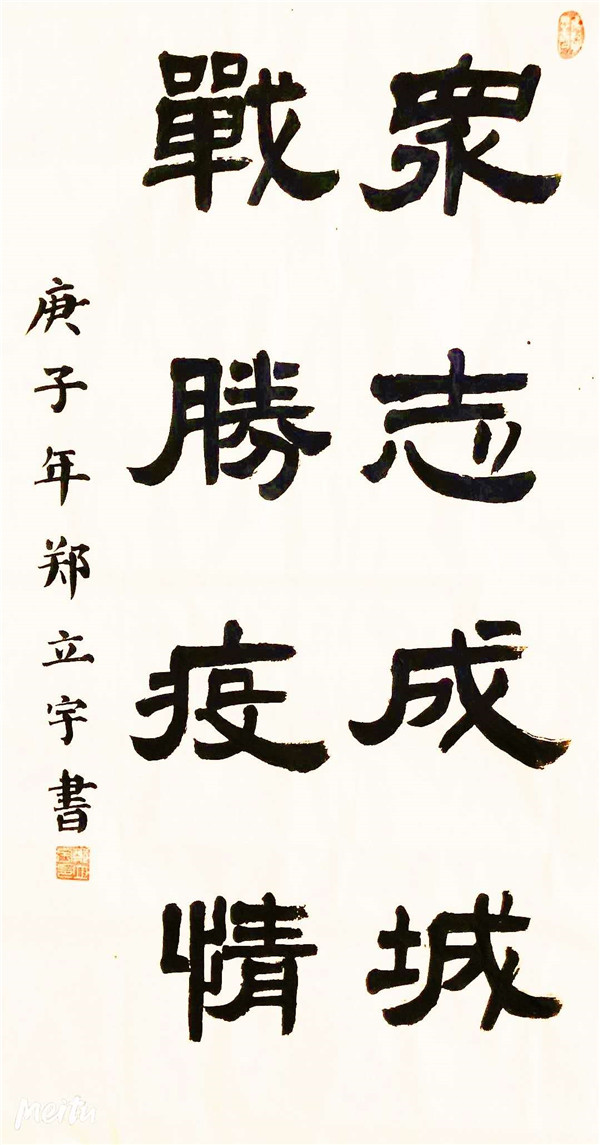 眾志成城
戰勝疫情
庚子年郑立宇書
meitu